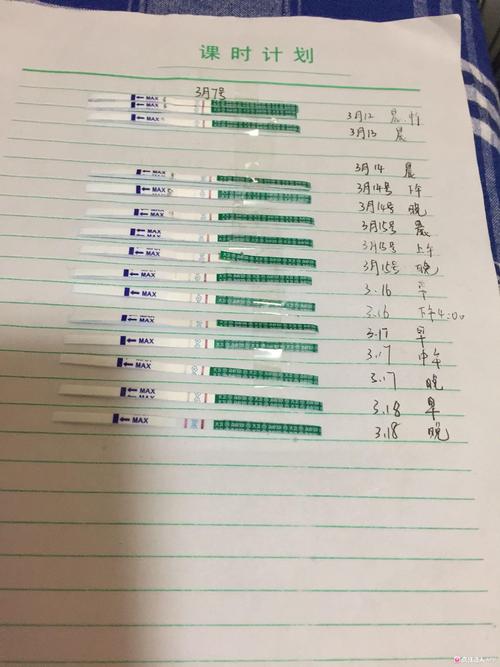 课时计划
3月7号
MAX
3月12 晨
MAX
3月13 晨
MAX 3月14 晨
MAX 3月14号 下午
MAX 3月14号 晚
MAX 3月15号 晨
MAX 3月15号 上午
3月15号 晚
MAX 3.16 早
MAX 3.16 下午4:00
MAX 3.17 早
MAX 3.17 中午
MAX 3.17 晚
MAX 3.18 早
MAX 3.18 晚